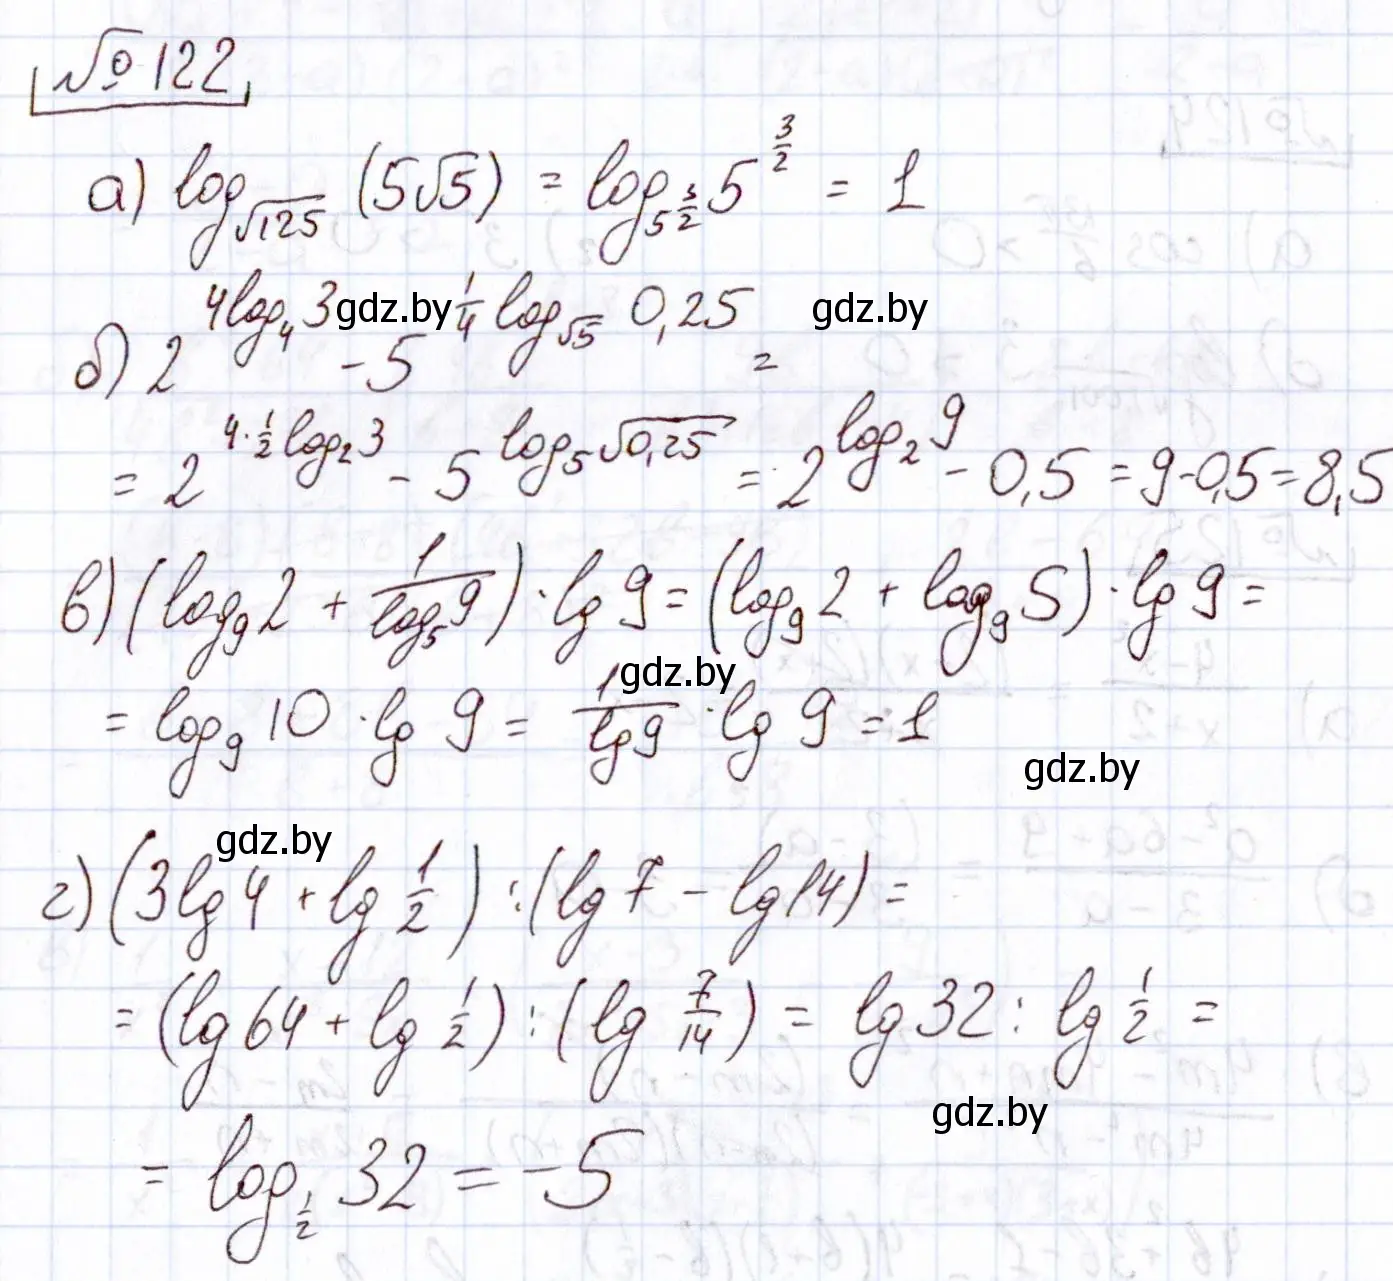 № 122
а) log_{√125} (5√5) = log_{5^{3/2}} 5^{3/2} = 1
б) 2^{4log_4 3} - 5^{1/4 log_{√5} 0,25} =
= 2^{4·1/2 log_2 3} - 5^{log_5 √0,25} = 2^{log_2 9} - 0,5 = 9-0,5 = 8,5
в) (log_9 2 + 1/(log_5 9)) · lg 9 = (log_9 2 + log_9 5) · lg 9 =
= log_9 10 · lg 9 = 1/(lg 9) · lg 9 = 1
г) (3lg 4 + lg 1/2) : (lg 7 - lg 14) =
= (lg 64 + lg 1/2) : (lg 7/14) = lg 32 : lg 1/2 =
= log_{1/2} 32 = -5
gdz.by
gdz.by
gdz.by
gdz.by
gdz.by
gdz.by